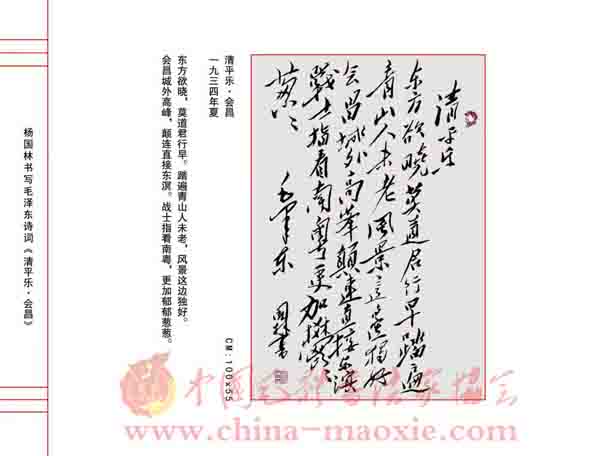 清平乐
东方欲晓莫道君行早踏遍
青山人未老风景这边独好
会昌城外高峰颠连直接东溟
战士指看南粤更加郁〻
葱〻
毛泽东
国林书
清平乐·会昌
一九三四年夏
东方欲晓，莫道君行早。踏遍青山人未老，风景这边独好。
会昌城外高峰，颠连直接东溟。战士指看南粤，更加郁郁葱葱。
CM:100x55
杨国林书写毛泽东诗词《清平乐·会昌》
中国毛体书法家协会
www.china-maoxie.com